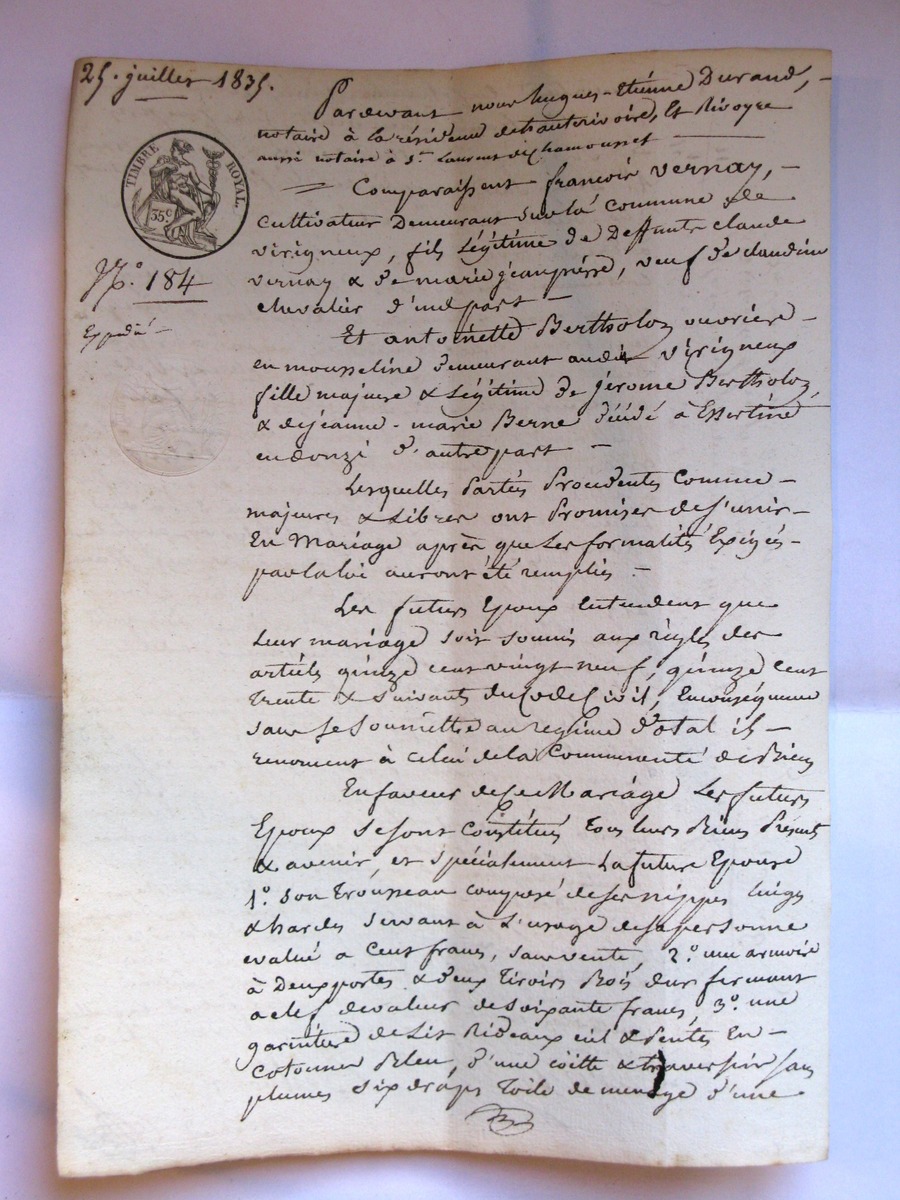 25. juillet 1835.
TIMBRE ROYAL.
35c
N.o 184
Expédié
Pardevant nous hugues-Etiénne Durand,
notaire à la résidence dehauterivoire, Et Rivoyre
aussi notaire à St Laurent de chamousset
= Comparaissent francois vernay,
Cultivateur Demeurant sur la commune de
virigneux, fils Légitime de Deffunts claude
vernay & de marie jeanpierre, veuf de claudine
chevalier d'une part
Et antoinette Bertholoz ouvriere
en mousseline demeurant audit virigneux
fille majeure & Légitime de jérome Bertholoz,
& dejeanne-marie Berne décédé à Essertine
endonzi d'autre part
Lesquelles Parties Procedentes Comme
majeures & Libres ont Promises de s'unir
En Mariage après que Les formalités Exigés
par la loi auront été remplies.
Les futurs Epoux Entendent que
Leur mariage soit soumis aux règles des
articles quinze cent vingt neuf, quinze cent
trente & suivants du Code Civil, En conséquence
sans se soumettre au régime Dotal ils
renoncent à celui de la Communauté de Biens
En faveur de ce Mariage Les futurs
Epoux se sont Constitués tous leurs Biens Présents
& avenir, et spécialement La future Epouse
1.o son Trousseau composé de ses nippes linges
& hardes servant à L'usage de sa personne
evalué a Cent francs, sans vente, 2.o une armoire
à Deux portes & deux tiroirs Bois dur fermant
a clef de valeur de soixante francs, 3.o une
garniture de Lit Rideaux ciel & Pentes En
Cotonne Bleu, d'une coitte & traversin sans
plumes six draps toile de menage d'une